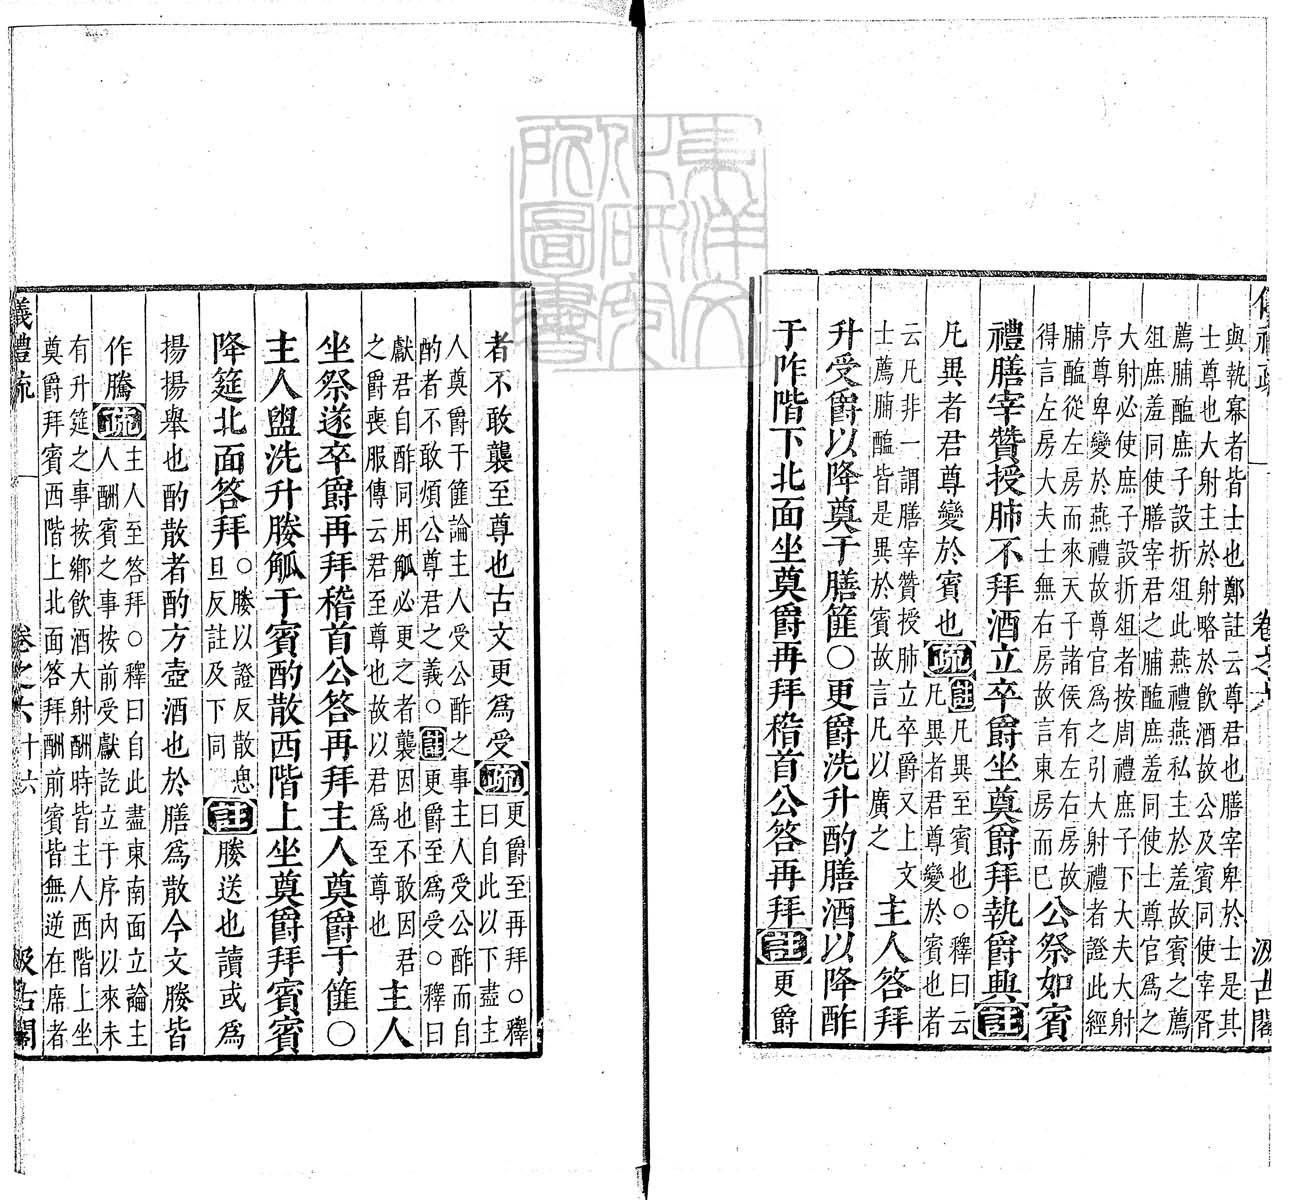 儀禮疏 卷之六 汲古閣
與執冪者皆士也鄭註云尊君也膳宰卑於士是其
士尊也大射主於射略於飲酒故公及賓同使宰胥
薦脯醢庶子設折俎此燕禮燕私主於羞故賓之薦
俎庶羞同使膳宰君之脯醢庶羞同使士尊官爲之
大射必使庶子設折俎者按周禮庶子下大夫大射
序尊卑變於燕禮故尊官爲之引大射禮者證此經
脯醢從左房而來天子諸侯有左右房故
得言左房大夫士無右房故言東房而已
公祭如賓
禮膳宰贊授肺不拜酒立卒爵坐奠爵拜執爵興註
凡異者君尊變於賓也疏
註凡異至賓也○釋曰云
凡異者君尊變於賓也者
云凡非一謂膳宰贊授肺立卒爵又上文
士薦脯醢皆是異於賓故言凡以廣之
主人答拜
升受爵以降奠于膳篚○更爵洗升酌膳酒以降酢
于阼階下北面坐奠爵再拜稽首公答再拜註更爵
者不敢襲至尊也古文更爲受疏
更爵至再拜○釋
曰自此以下盡主
人奠爵于篚論主人受公酢之事主人受公酢而自
酌者不敢煩公尊君之義○註更爵至爲受○釋曰
獻君自酢同用觚必更之者襲因也不敢因君
之爵喪服傳云君至尊也故以君爲至尊也
主人
坐祭遂卒爵再拜稽首公答再拜主人奠爵于篚○
主人盥洗升媵觚于賓酌散西階上坐奠爵拜賓賓
降筵北面答拜
○媵以證反散思
旦反註及下同
註媵送也讀或爲
揚揚舉也酌散者酌方壺酒也於膳爲散今文媵皆
作騰疏
主人至答拜○釋曰自此盡東南面立論主
人酬賓之事按前受獻訖立于序內以來未
有升筵之事按鄉飲酒大射酬時皆主人西階上坐
奠爵拜賓西階上北面答拜酬前賓皆無逆在席者
儀禮疏 卷之六 十六 汲古閣
東洋文
化研究
所圖書